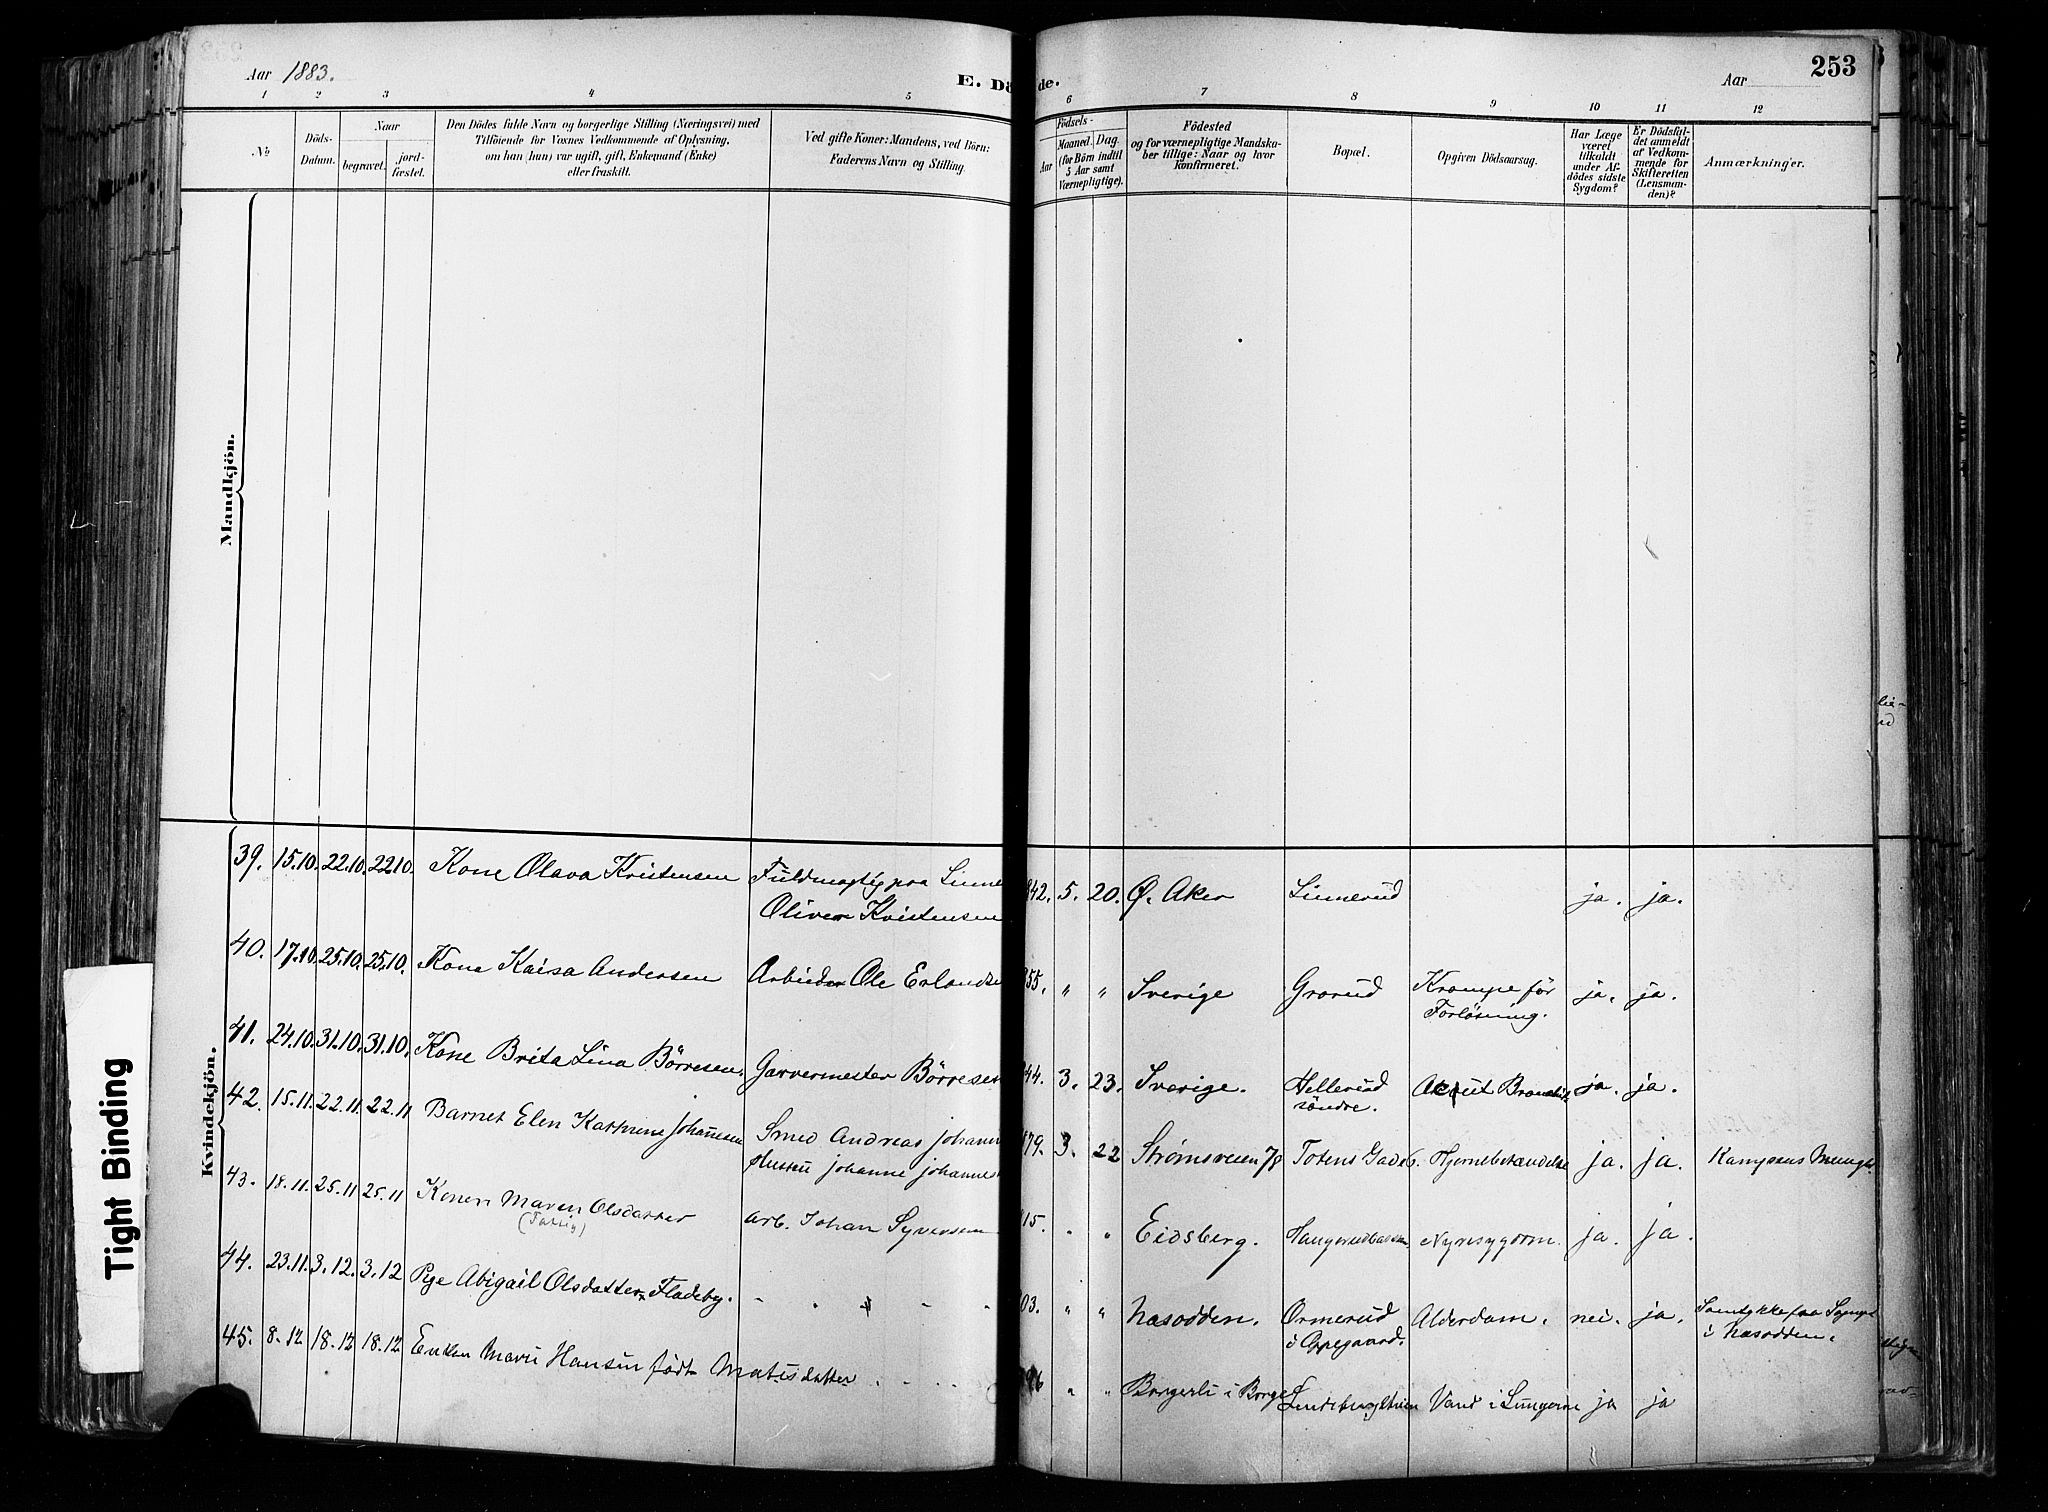 Aar 1883.
E. Dö
de.
Aar
253
1 2 3 4 5 6 7 8 9 10 11 12
№
Döds-
Datum.
Naar
begravet.
jord-
fæstet.
Den Dödes fulde Navn og borgerlige Stilling (Næringsvei) med
Tilföiende for Voxnes Vedkommende af Oplysning,
om han (hun) var ugift, gift, Enkemand (Enke)
eller fraskilt.
Ved gifte Koner: Mandens, ved Börn:
Faderens Navn og Stilling.
Födsels-
Aar
Maaned. Dag.
(for Börn indtil
5 Aar samt
Værnepligtige).
Födested
og for værnepligtige Mandska-
ber tillige: Naar og hvor
konfirmeret.
Bopæl.
Opgiven Dödsaarsag.
Har Læge
været
tilkaldt
under Af-
dödes sidste
Sygdom?
Er Dödsfal-
det anmeldt
af Vedkom-
mende for
Skifteretten
(Lensman-
den)?
Anmærkninger.
Mandkjön.
Kvindekjön.
39. 15.10. 22.10. 22.10. Kone Olava Kristensen Fuldmægtig paa Linne
Oliver Kristensen
842. 5. 20. Ø. Aker Linnerud ja. ja.
40. 17.10. 25.10. 25.10. Kone Kaisa Andersen Arbeider Ole Erlandse
855. " " Sverige Grorud Krampe før ja. ja.
Forløsning.
41. 24.10. 31.10. 31.10. Kone Brita Lina Börresen. Garvermester Börresen
844. 3. 23. Sverige. Hellerud Acut ja. ja.
søndre.
42. 15.11. 22.11. 22.11 Barnet Elen Kathrine Johansen Smed Andreas Johan
Hustru Johanne Johannes
879. 3. 22 Strømsveien 78 Totens Gade 6. Hjernebetændelse ja. ja. Kampens Menigh
43. 18.11. 25.11 25.11 Konen Maren Olsdatter
(Fattig)
Arb. Johan Syversen
15. " " Eidsberg. Nyresygdom. ja. ja.
44. 23.11. 3.12. 3.12 Pige Abigail Olsdatter Fladeby.
03. " " Næsodden. Ormerud Alderdom. nei. ja.
i Oppegaard.
i Næsodden.
45. 8.12 18.12 18.12 Enken Marie Hansen født Matisdatter
96 " " Borgerli i Borge Vand i Lungerne ja ja
Tight Binding